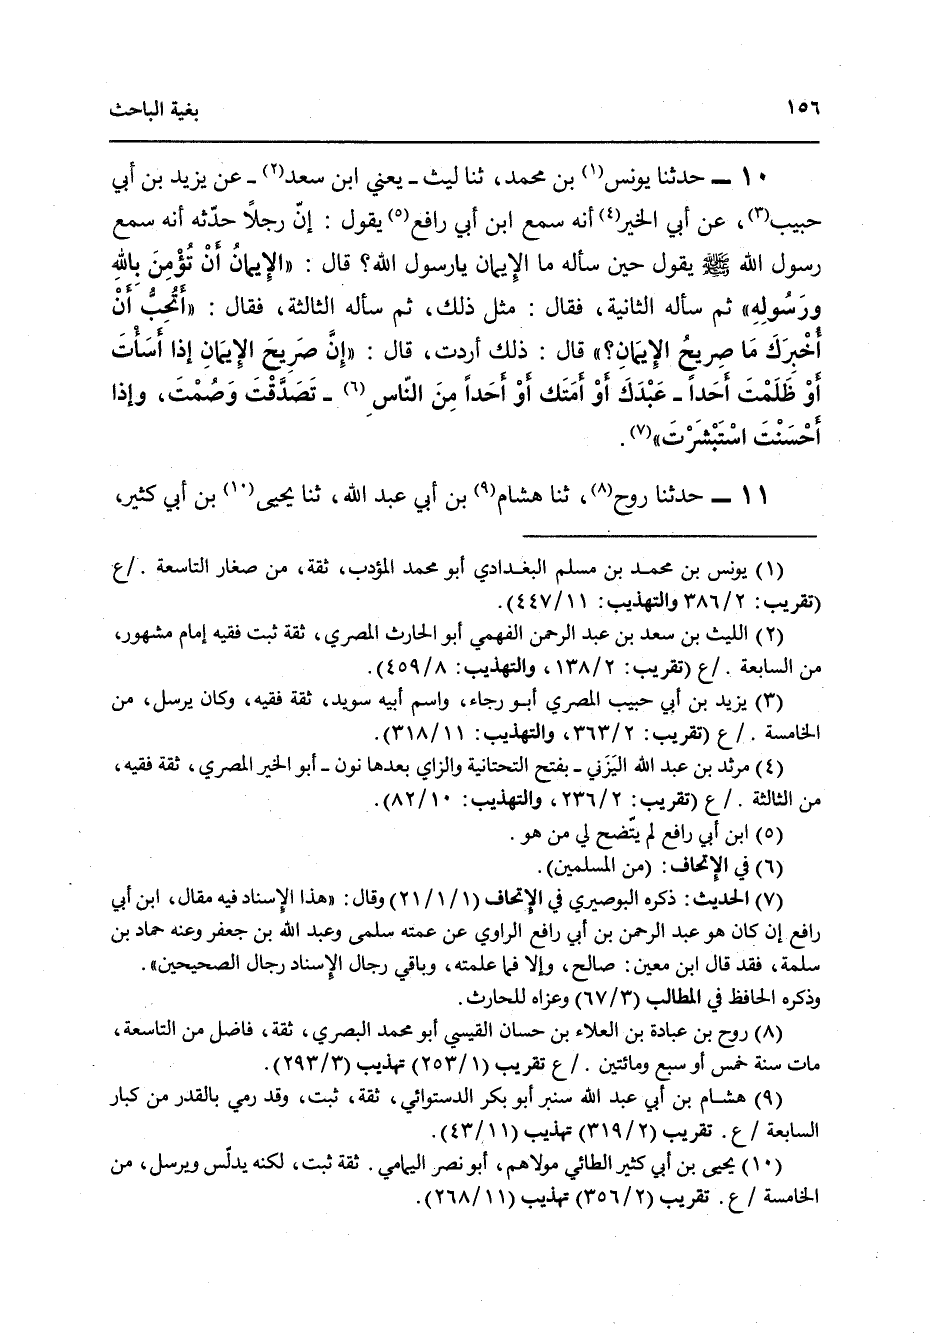 ١٥٦ بغية الباحث
١٠ ــ حدثنا يونس(١) بن محمد، ثنا ليث ـ يعني ابن سعد(٢) ـ عن يزيد بن أبي
حبيب(٣)، عن أبي الخير(٤) أنه سمع ابن أبي رافع(٥) يقول : إنّ رجلاً حدّثه أنه سمع
رسول الله ﷺ يقول حين سأله ما الإيمان يارسول الله؟ قال : «الإِيمانُ أَنْ تُؤْمِنَ بِاللهِ
ورَسُولِهِ» ثم سأله الثانية، فقال : مثل ذلك، ثم سأله الثالثة، فقال : «أَتُحِبُّ أَنْ
أُخْبِرَكَ مَا صِرِيحُ الإِيمَانِ؟» قال : ذلك أردت، قال : «إِنَّ صَرِيحَ الإِيمَانِ إذا أَسَأْتَ
أَوْ ظَلَمْتَ أَحَداً ـ عَبْدَكَ أَوْ أَمَتَك أَوْ أَحَداً مِنَ النّاس (٦) ـ تَصَدَّقْتَ وَصُمْتَ، وإذا
أَحْسَنْتَ اسْتَبْشَرْتَ»(٧).
١١ ــ حدثنا روح(٨)، ثنا هشام(٩) بن أبي عبد الله، ثنا يحيى(١٠) بن أبي كثير،
(١) يونس بن محمد بن مسلم البغدادي أبو محمد المؤدب، ثقة، من صغار التاسعة ./ع
(تقريب: ٣٨٦/٢ والتهذيب: ٤٤٧/١١).
(٢) الليث بن سعد بن عبد الرحمن الفهمي أبو الحارث المصري، ثقة ثبت فقيه إمام مشهور،
من السابعة ./ع (تقريب: ١٣٨/٢، والتهذيب: ٤٥٩/٨).
(٣) يزيد بن أبي حبيب المصري أبو رجاء، واسم أبيه سويد، ثقة فقيه، وكان يرسل، من
الخامسة ./ ع (تقريب: ٣٦٣/٢، والتهذيب: ٣١٨/١١).
(٤) مرثد بن عبد الله اليَزَني ـ بفتح التحتانية والزاي بعدها نون ـ أبو الخير المصري، ثقة فقيه،
من الثالثة ./ ع (تقريب: ٢٣٦/٢، والتهذيب: ٨٢/١٠).
(٥) ابن أبي رافع لم يتّضح لي من هو .
(٦) في الإتحاف: (من المسلمين).
(٧) الحديث: ذكره البوصيري في الإتحاف (٢١/١/١) وقال: «هذا الإسناد فيه مقال، ابن أبي
رافع إن كان هو عبد الرحمن بن أبي رافع الراوي عن عمته سلمى وعبد الله بن جعفر وعنه حماد بن
سلمة، فقد قال ابن معين: صالح، وإلا فما علمته، وباقي رجال الإسناد رجال الصحيحين».
وذكره الحافظ في المطالب (٦٧/٣) وعزاه للحارث.
(٨) روح بن عبادة بن العلاء بن حسان القيسي أبو محمد البصري، ثقة، فاضل من التاسعة،
مات سنة خمس أو سبع ومائتين ./ ع تقريب (٢٥٣/١) تهذيب (٢٩٣/٣).
(٩) هشام بن أبي عبد الله سنبر أبو بكر الدستوائي، ثقة، ثبت، وقد رمي بالقدر من كبار
السابعة / ع. تقريب (٣١٩/٢) تهذيب (٤٣/١١).
(١٠) يحيى بن أبي كثير الطائي مولاهم، أبو نصر اليمامي. ثقة ثبت، لكنه يدلّس ويرسل، من
الخامسة / ع. تقريب (٣٥٦/٢) تهذيب (٢٦٨/١١).